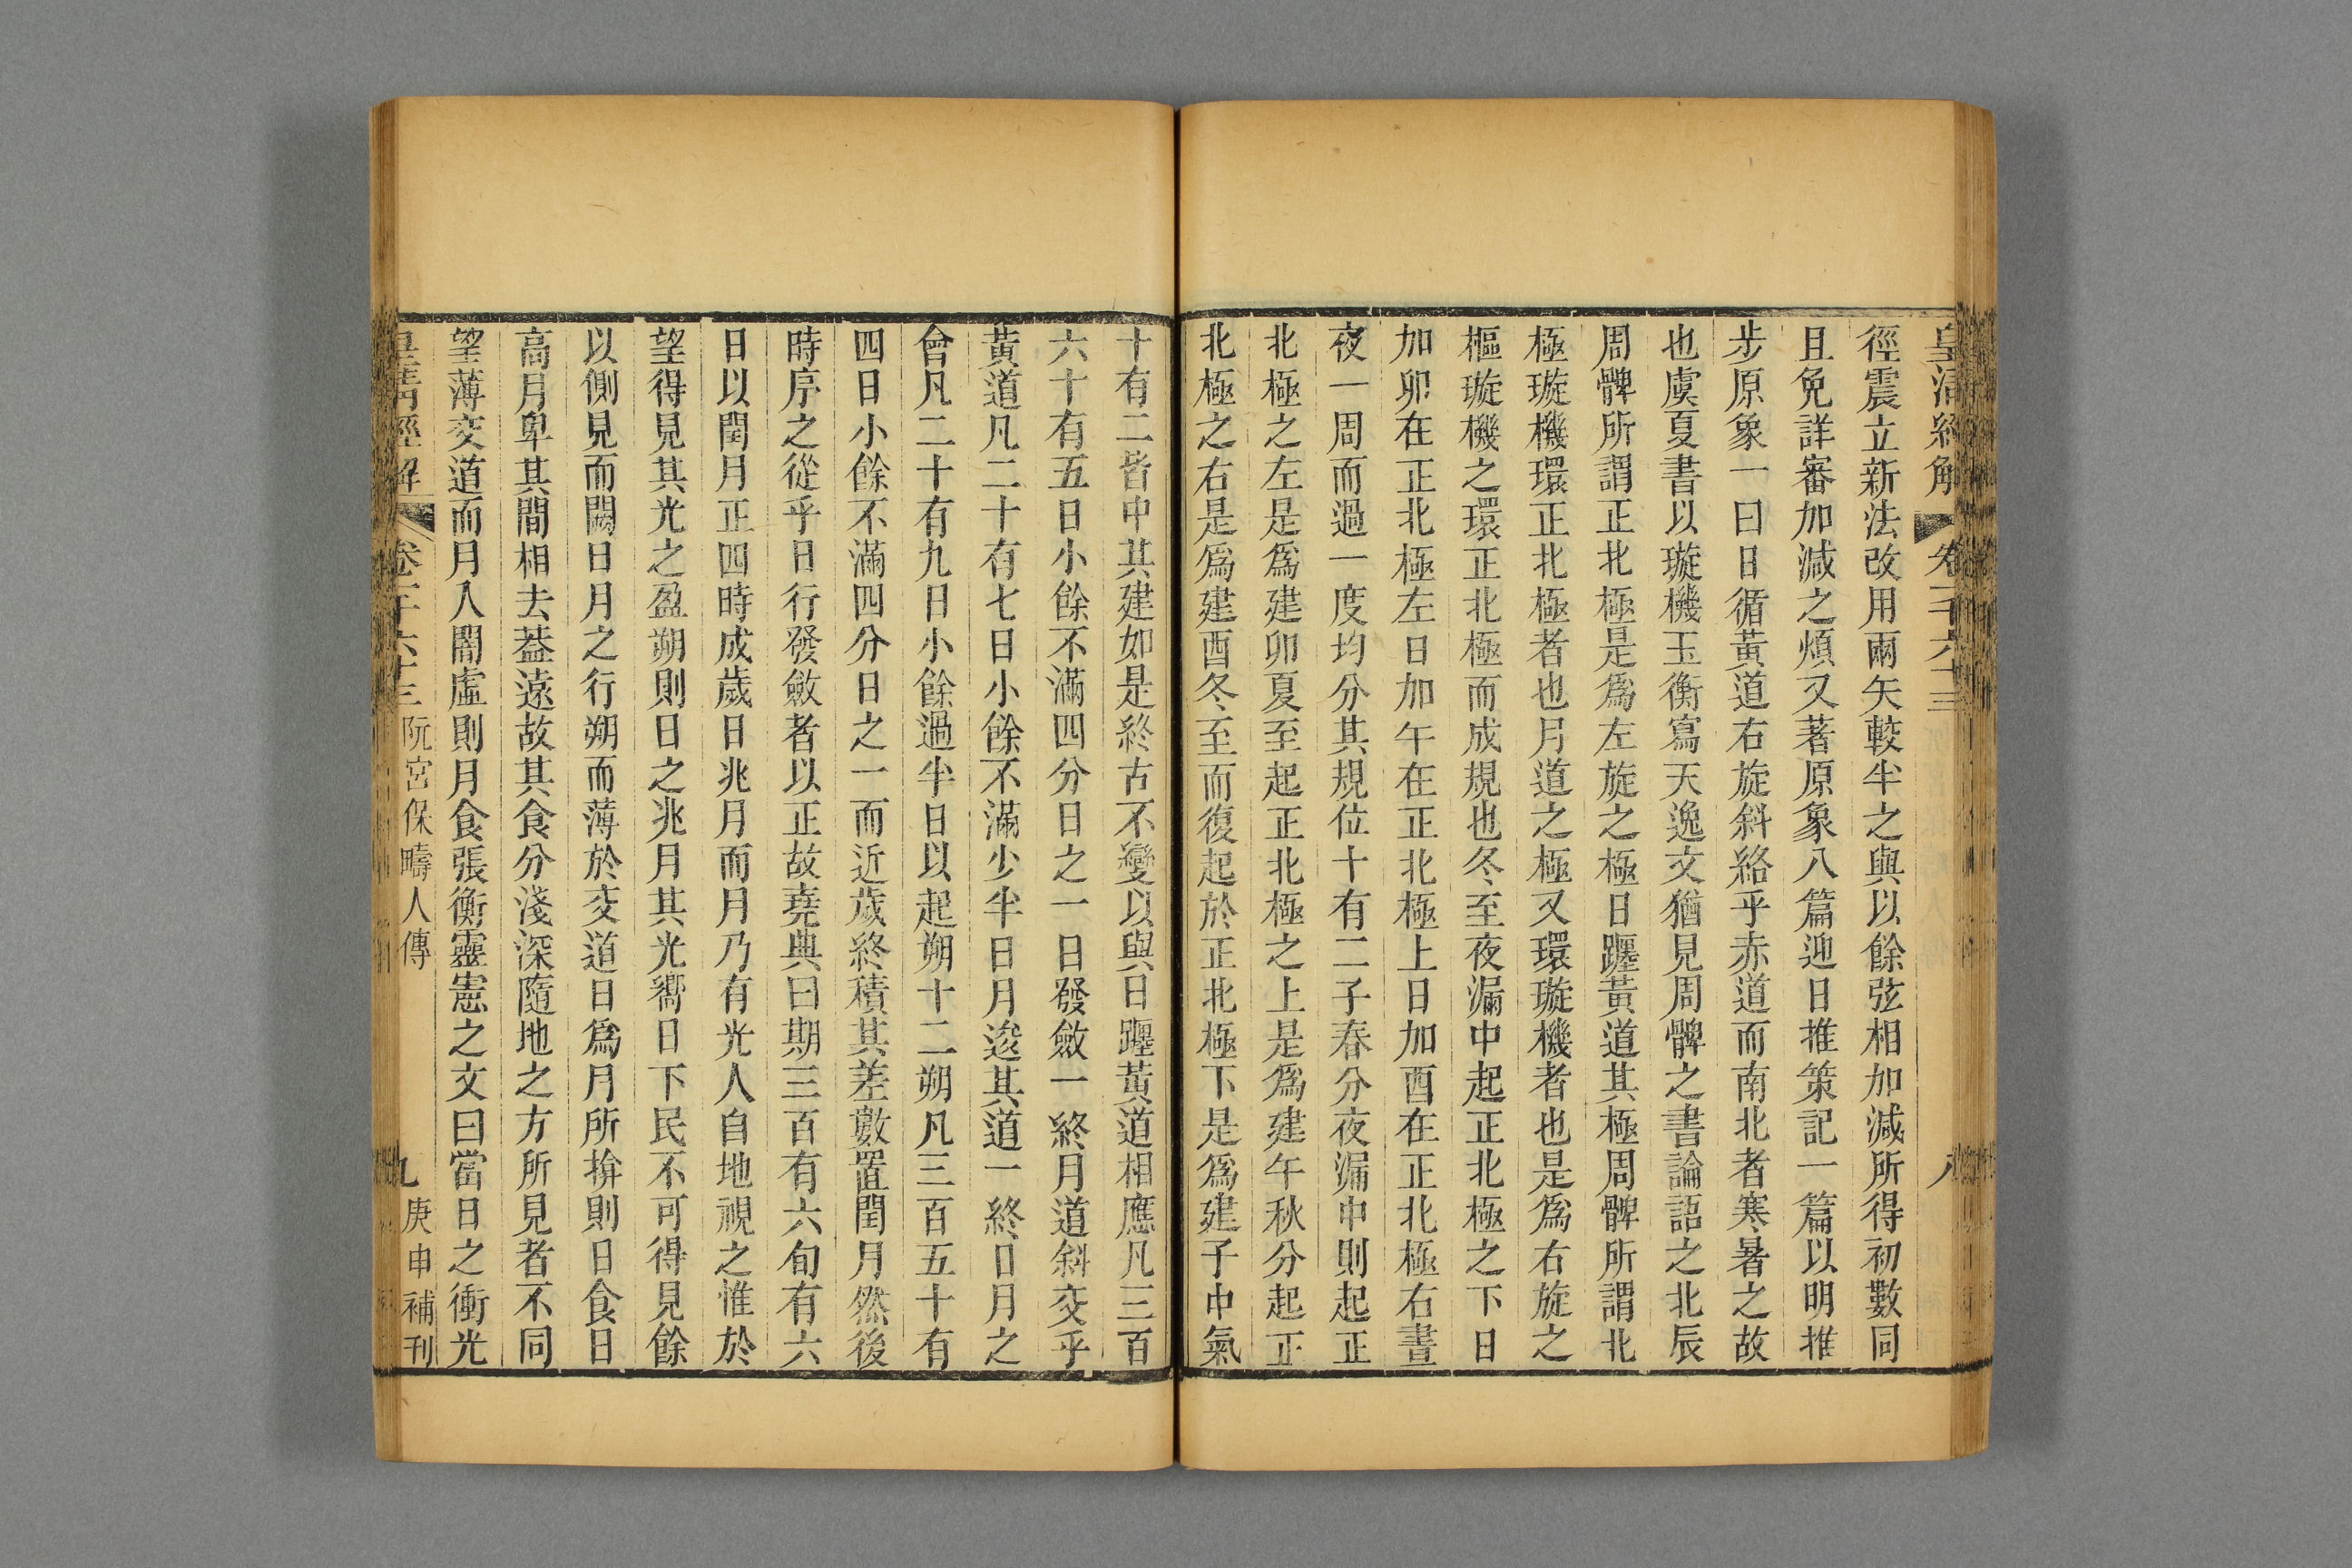 皇清經解 卷一千六十三 八
徑震立新法改用兩矢較半之與以餘弦相加減所得初數同
且免詳審加減之煩又著原象八篇迎日推策記一篇以明推
步原象一曰日循黃道右旋斜絡乎赤道而南北者寒暑之故
也虞夏書以璇機玉衡寫天逸文猶見周髀之書論語之北辰
周髀所謂正北極是爲左旋之極日躔黃道其極周髀所謂北
極璇機環正北極者也月道之極又環璇機者也是爲右旋之
樞璇機之環正北極而成規也冬至夜漏中起正北極之下日
加卯在正北極左日加午在正北極上日加酉在正北極右晝
夜一周而過一度均分其規位十有二子春分夜漏中則起正
北極之左是爲建卯夏至起正北極之上是爲建午秋分起正
北極之右是爲建酉冬至而復起於正北極下是爲建子中氣
十有二皆中其建如是終古不變以與日躔黃道相應凡三百
六十有五日小餘不滿四分日之一日發斂一終月道斜交乎
黃道凡二十有七日小餘不滿少半日月逡其道一終日月之
會凡二十有九日小餘過半日以起朔十二朔凡三百五十有
四日小餘不滿四分日之一而近歲終積其差數置閏月然後
時序之從乎日行發斂者以正故堯典曰期三百有六旬有六
日以閏月正四時成歲日兆月而月乃有光人自地視之惟於
望得見其光之盈朔則日之兆月其光嚮日下民不可得見餘
以側見而闕日月之行朔而薄於交道日爲月所揜則日食日
高月卑其間相去葢遠故其食分淺深隨地之方所見者不同
望薄交道而月入闇虛則月食張衡靈憲之文曰當日之衝光
皇清經解 卷一千六十三 阮宮保疇人傳 九 庚申補刊